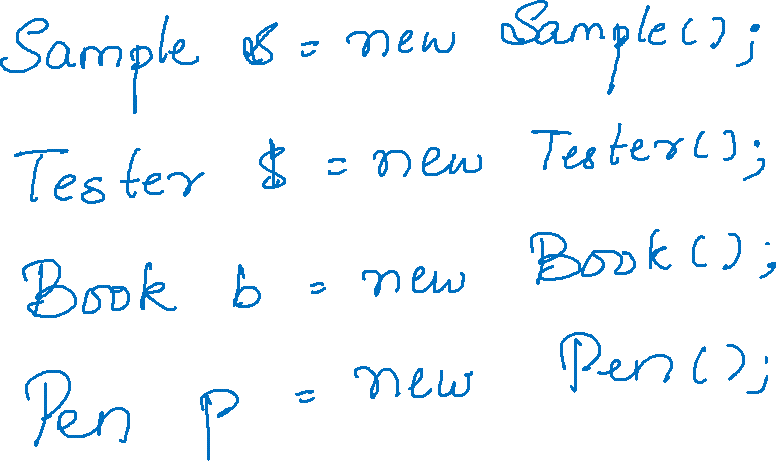 Sample s = new Sample();
Tester $ = new Tester();
Book b = new Book();
Pen p = new Pen();